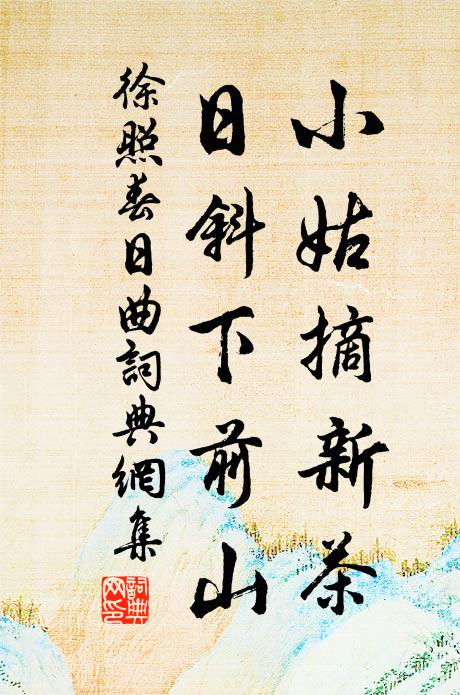 小姑摘新茶
日斜下前山
徐照春日曲詞典網集
詞典